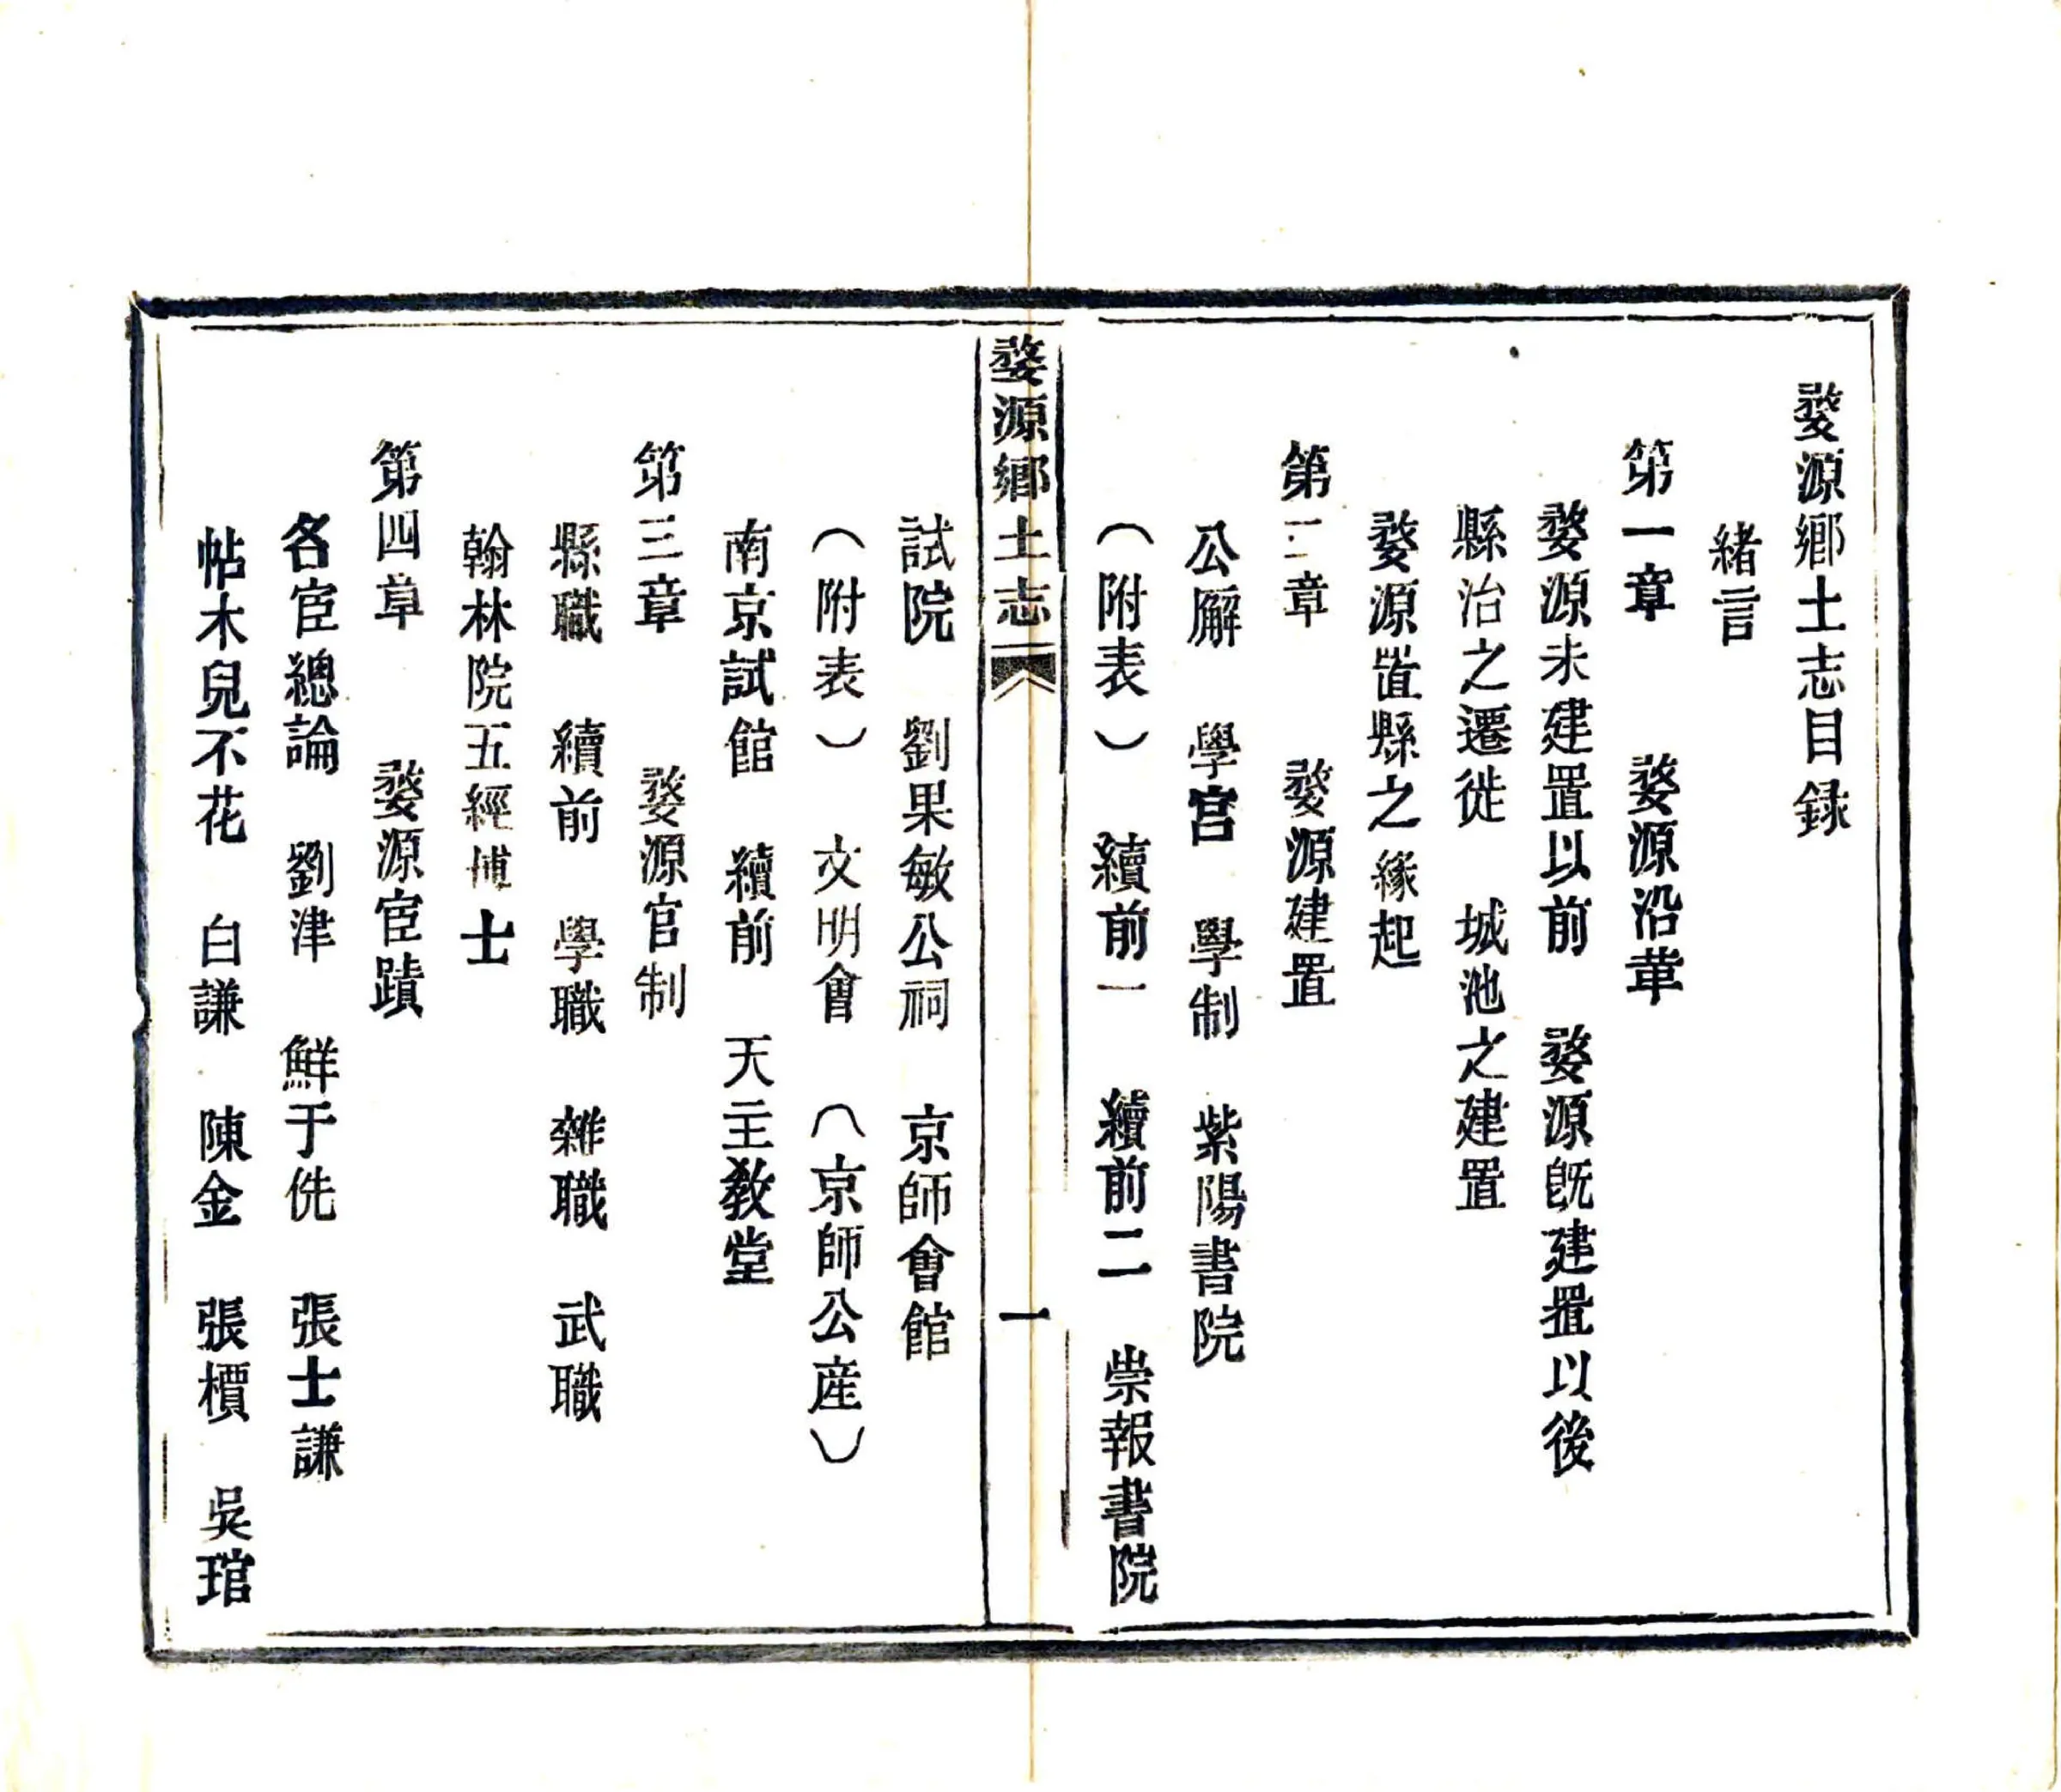 婺源鄉土志目录
緒言
第一章　婺源沿革
婺源未建置以前　婺源旣建置以後
縣治之遷徙　城池之建置
婺源置縣之緣起
第二章　婺源建置
公廨　學宮　學制　紫陽書院
（附表）　續前一　續前二　崇報書院
婺源鄉土志
一
試院　劉果敏公祠　京師會館
（附表）　文明會　（京師公産）
南京試館　續前　天主敎堂
第三章　婺源官制
縣職　續前　學職　雜職　武職
翰林院五經博士
第四章　婺源宦蹟
各宦總論　劉津　鮮于侁　張士謙
帖木兒不花　白謙　陳金　張檟　吳琯